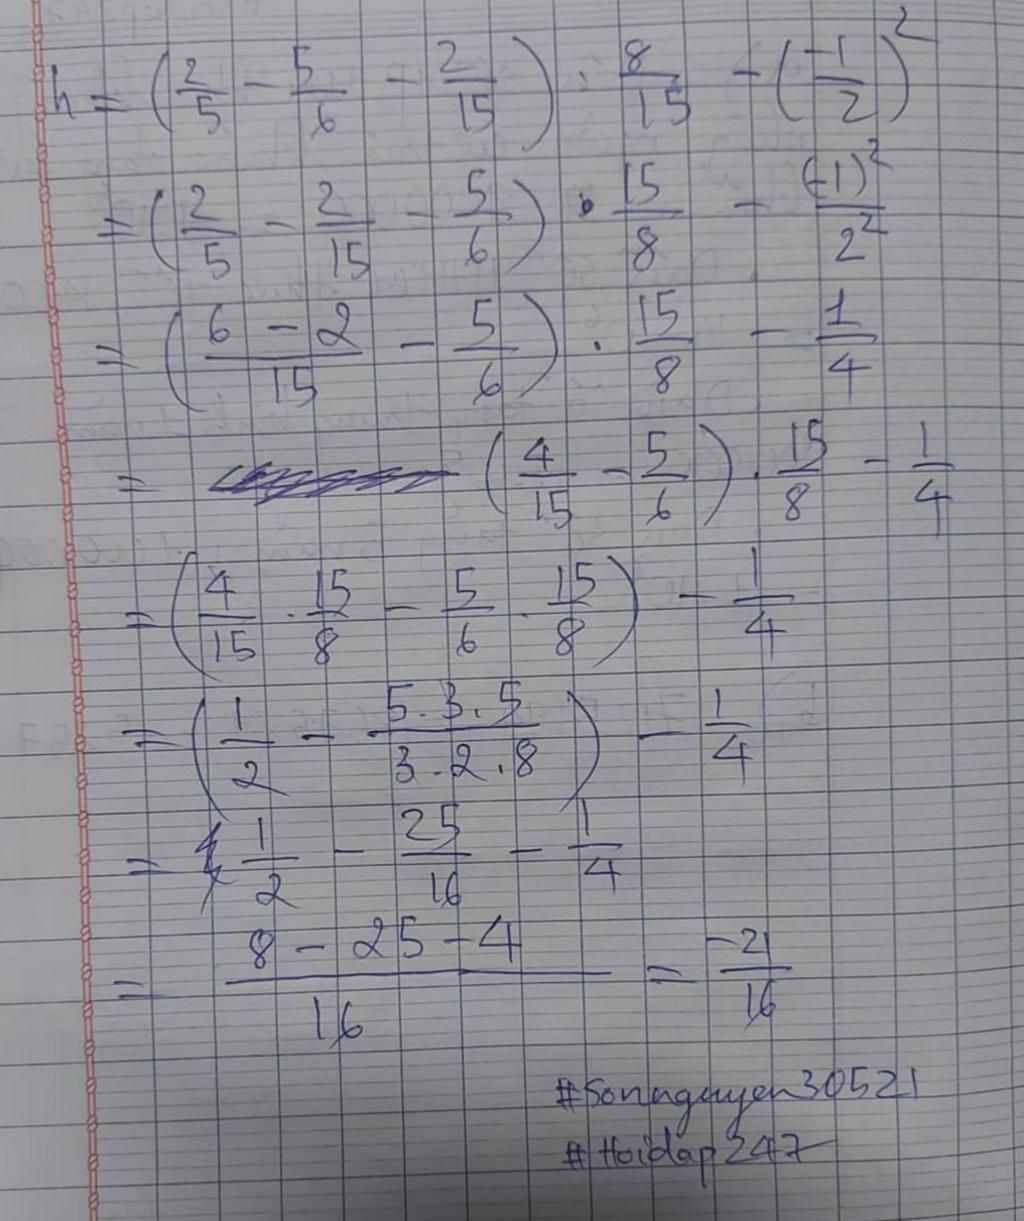 h = (2/5 - 5/6 - 2/15) : 8/15 - (-1/2)²
= (2/5 - 2/15 - 5/6) . 15/8 - (-1)²/2²
= ((6 - 2)/15 - 5/6) . 15/8 - 1/4
= (4/15 - 5/6) . 15/8 - 1/4
= (4/15 . 15/8 - 5/6 . 15/8) - 1/4
= (1/2 - (5.3.5)/(3.2.8)) - 1/4
= 1/2 - 25/16 - 1/4
= (8 - 25 - 4)/16 = -21/16
#Sonnguyen30521
#Hoidap247